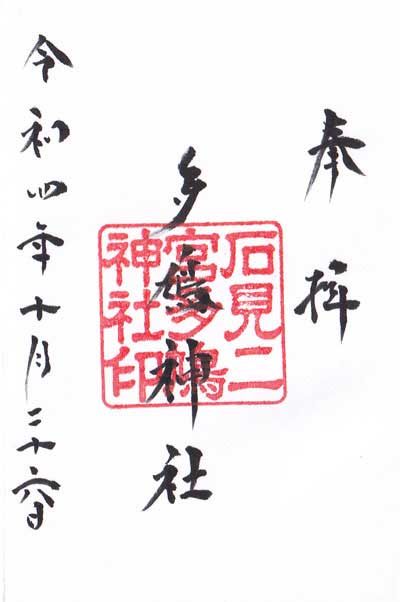 奉拝
多鳩神社
石見二
宮多鳩
神社印
令和四年十月二十六日